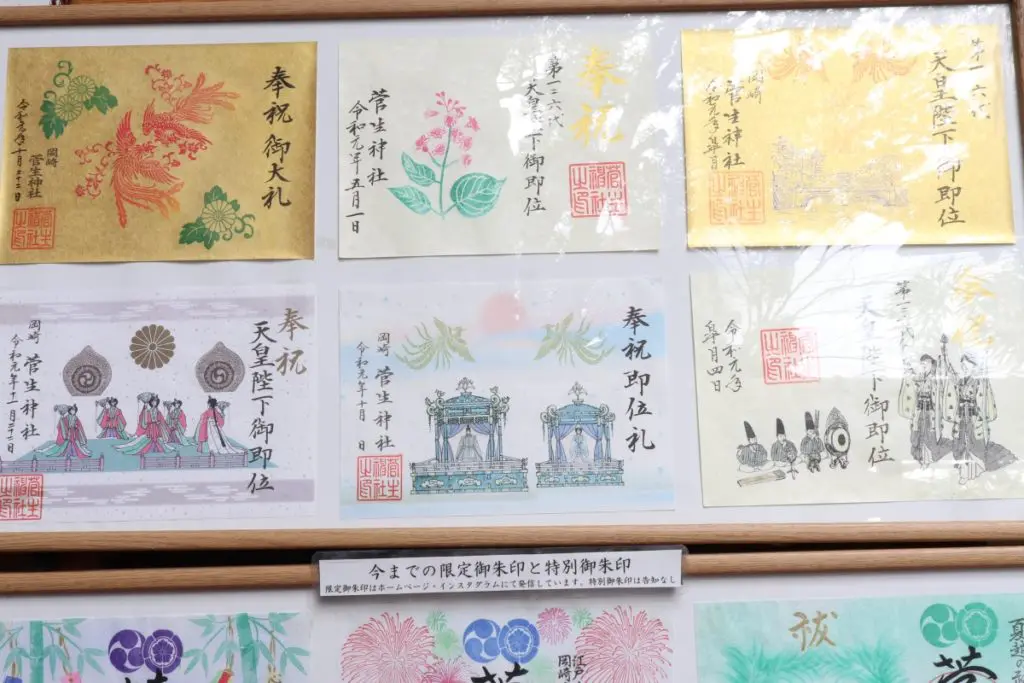 奉祝御大礼
岡崎
菅生神社
奉祝
第一二六代
天皇陛下御即位
菅生神社
令和元年五月一日
天皇陛下御即位
岡崎
菅生神社
奉祝
天皇陛下御即位
岡崎
菅生神社
令和元年十一月二十二日
奉祝即位礼
岡崎
菅生神社
令和元年十月 日
奉祝
天皇陛下御即位
令和元年
皐月四日
今までの限定御朱印と特別御朱印
限定御朱印はホームページ・インスタグラムにて発信しています。特別御朱印は告知なし
江戸
岡崎
祓
夏越の